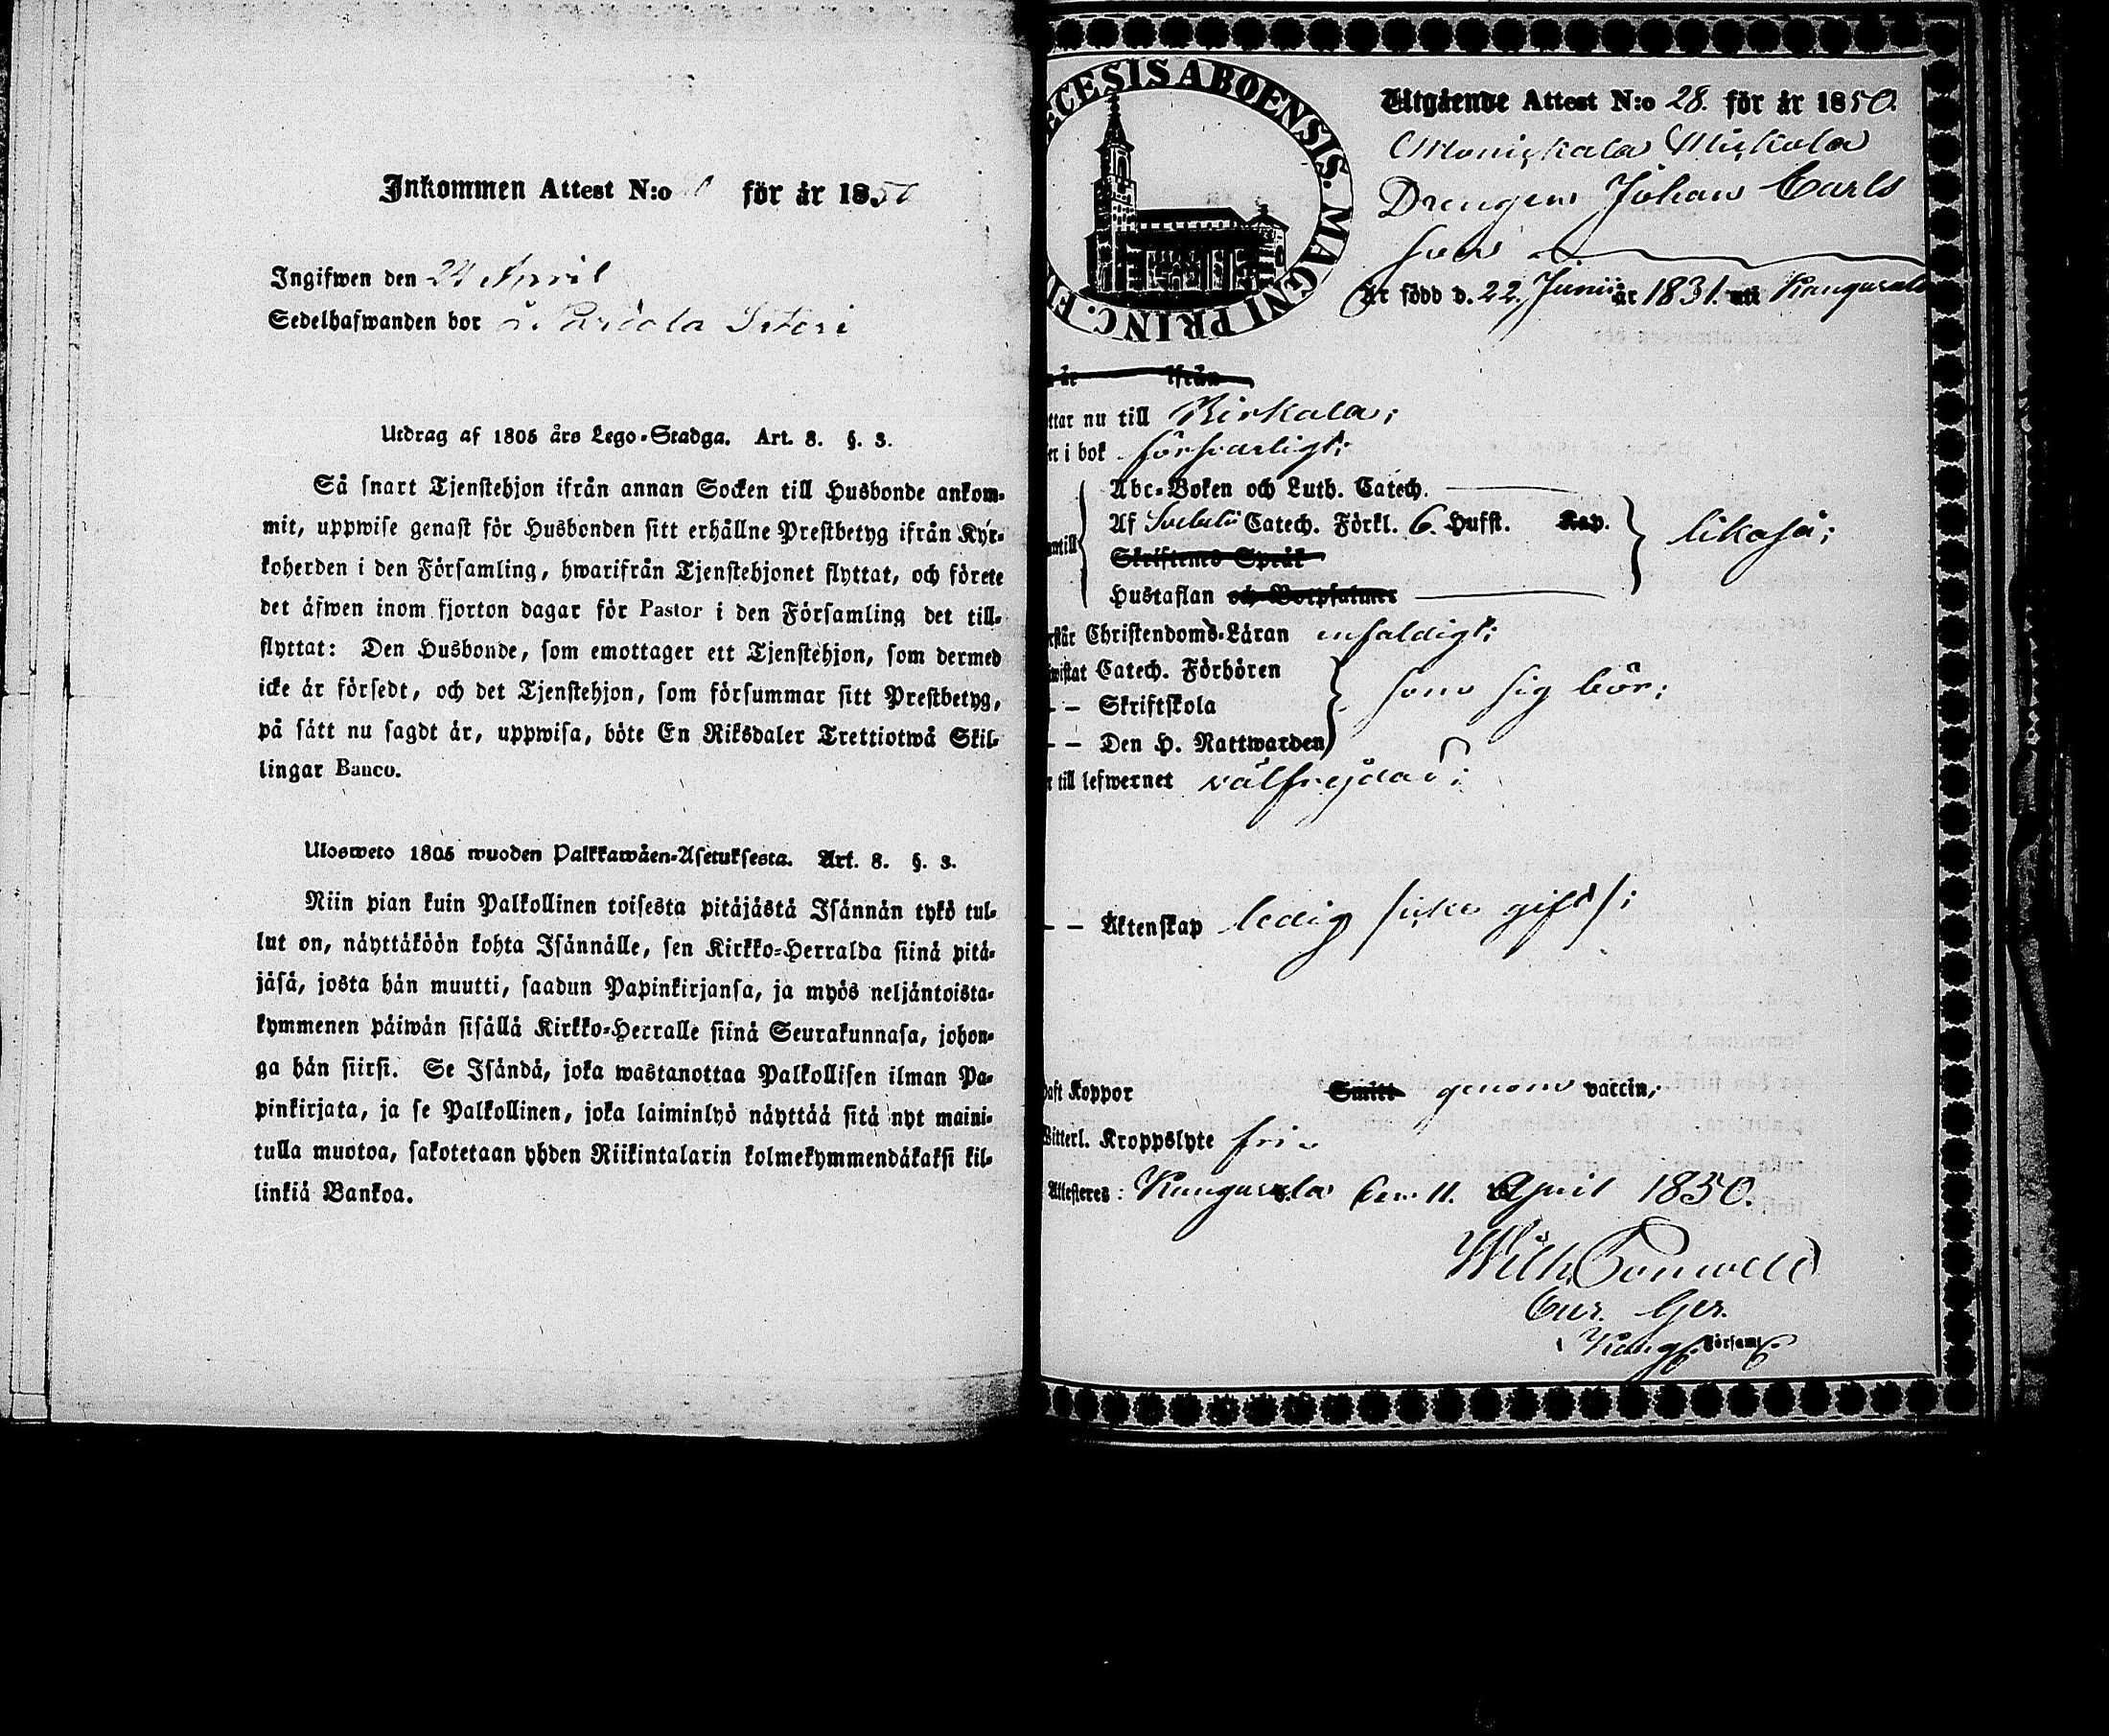 Inkommen Attest N:o för år 1850
Ingifwen den 24 April
Sedelhafwanden bor å
Utdrag af 1805 års Lego-Stadga. Art. 8. §. 3.
Så snart Tjenstehjon ifrån annan Socken till Husbonde ankom-
mit, uppwise genast för Husbonden sitt erhållne Prestbetyg ifrån Kyr-
koherden i den Församling, hwarifrån Tjenstehjonet flyttat, och förete
det äfwen inom fjorton dagar för Pastor i den Församling det till-
flyttat: Den Husbonde, som emottager ett Tjenstehjon, som dermed
icke är försedt, och det Tjenstehjon, som försummar sitt Prestbetyg,
på sätt nu sagdt är, uppwisa, böte En Riksdaler Trettiotwå Skil-
lingar Banco.
Ulosweto 1805 wuoden Palkkawäen-Asetuksesta. Art. 8. §. 3.
Niin pian kuin Palkollinen toisesta pitäjästä Isännän tykö tul-
lut on, näyttäköön kohta Isännälle, sen Kirkko-Herralda siinä pitä-
jäsä, josta hän muutti, saadun Papinkirjansa, ja myös neljäntoista-
kymmenen päiwän sisällä Kirkko-Herralle siinä Seurakunnasa, johon-
ga hän siirsi. Se Isändä, joka wastanottaa Palkollisen ilman Pa-
pinkirjata, ja se Palkollinen, joka laiminlyö näyttää sitä nyt maini-
tulla muotoa, sakotetaan yhden Riikintalarin kolmekymmendäkaksi kil-
linkiä Bankoa.
ECESIS ABOENSIS. MAGNI PRINC. FI
Utgående Attest N:o 28. för år 1850.
Drengen Johan Carls
son
är född d. 22. Junii år 1831. uti Kangasala
år ifrån
ttar nu till Birkala;
er i bok försvarligt;
Abc-Boken och Luth. Catech.
Af Svebelii Catech. Förkl. 6. Hufst. Kap.
likaså;
ntill
Skriftenes Språk
Hustaflan och Botpsalmer
rstår Christendoms-Läran enfaldigt;
wistat Catech. Förhören
— Skriftskola
som sig bör;
— Den H. Nattwarden
r till lefwernet välfrejdad;
— Äktenskap ledig /icke gift/;
haft Koppor Smitt genom vaccin;
Witterl. Kroppslyte fri.
Attesteres: Kangasala den 11. April 1850.
Wilh.
Cur. Ger.
i Kang. Församl.